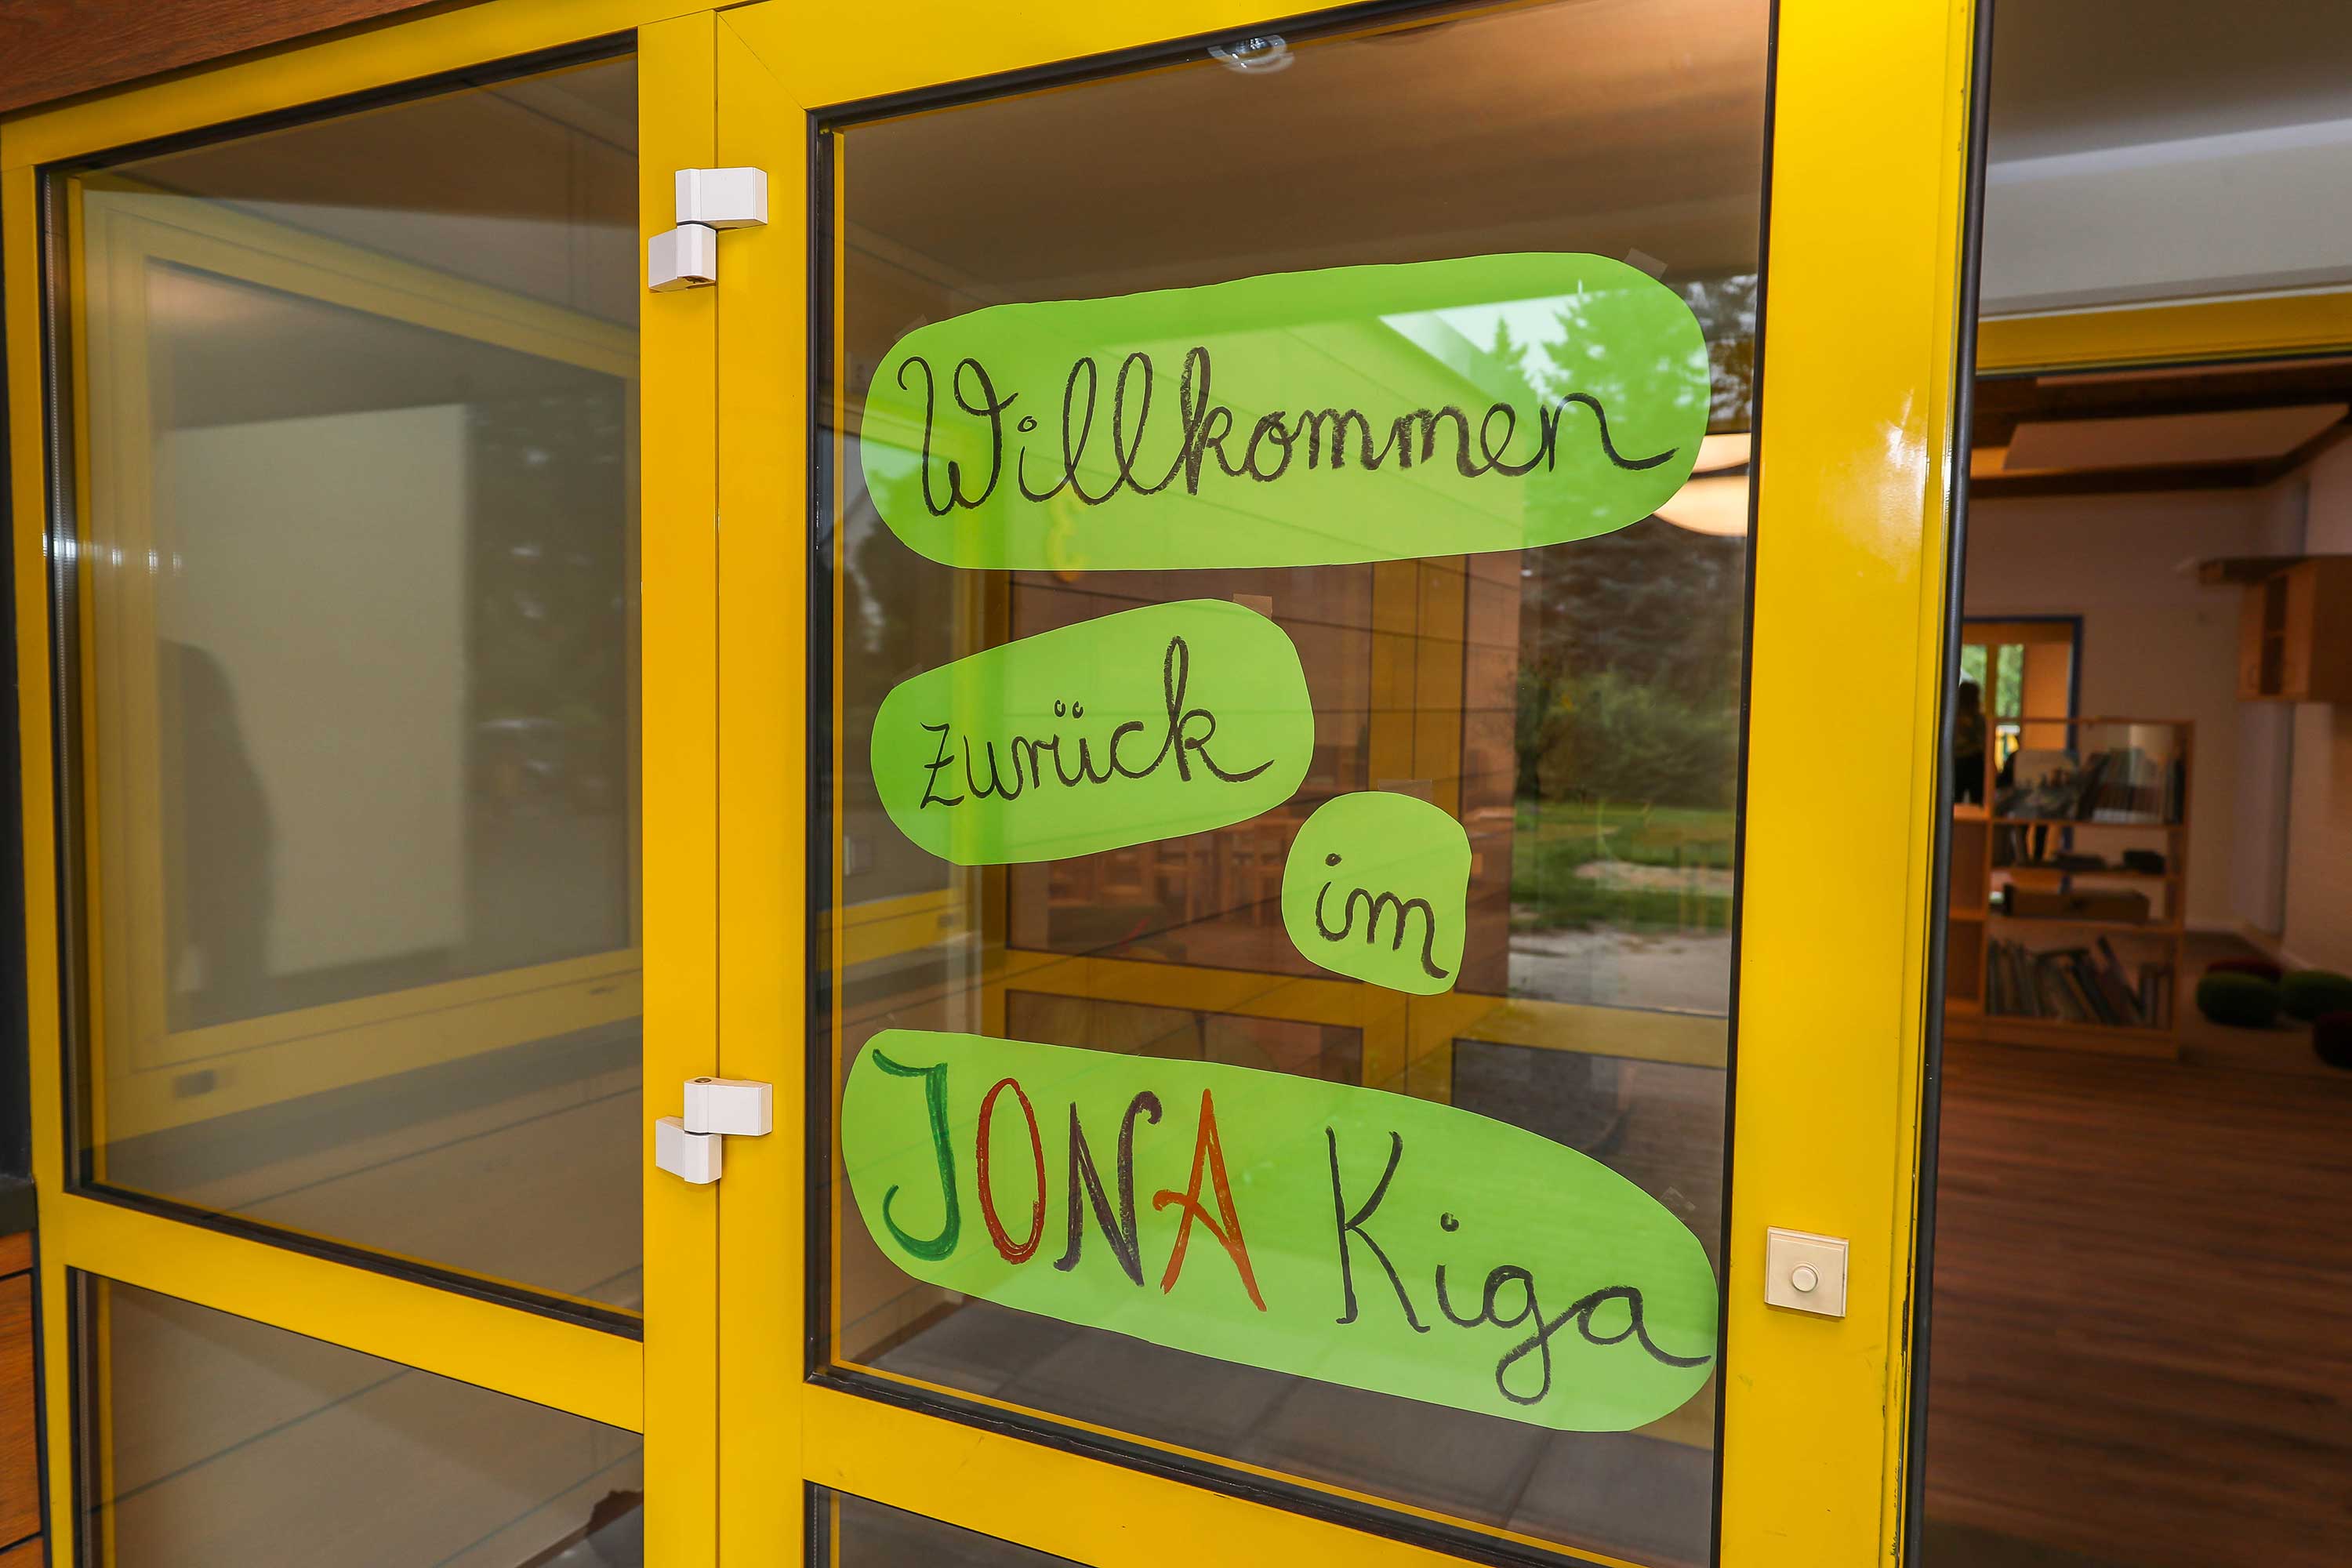 Willkommen
zurück
im
JONA Kiga